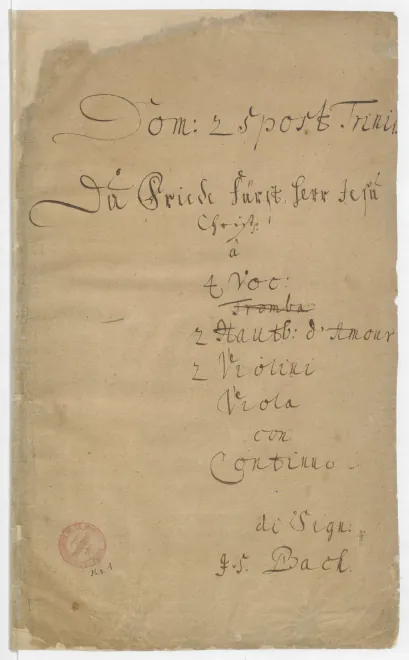 Dom: 25 post Trinit
Du Friede Fürst Herr Jesu
Christ:
â
4 Voc:
Tromba
2 Hautb: d'Amour
2 Violini
Viola
con
Continuo
di Sign:
J. S. Bach.